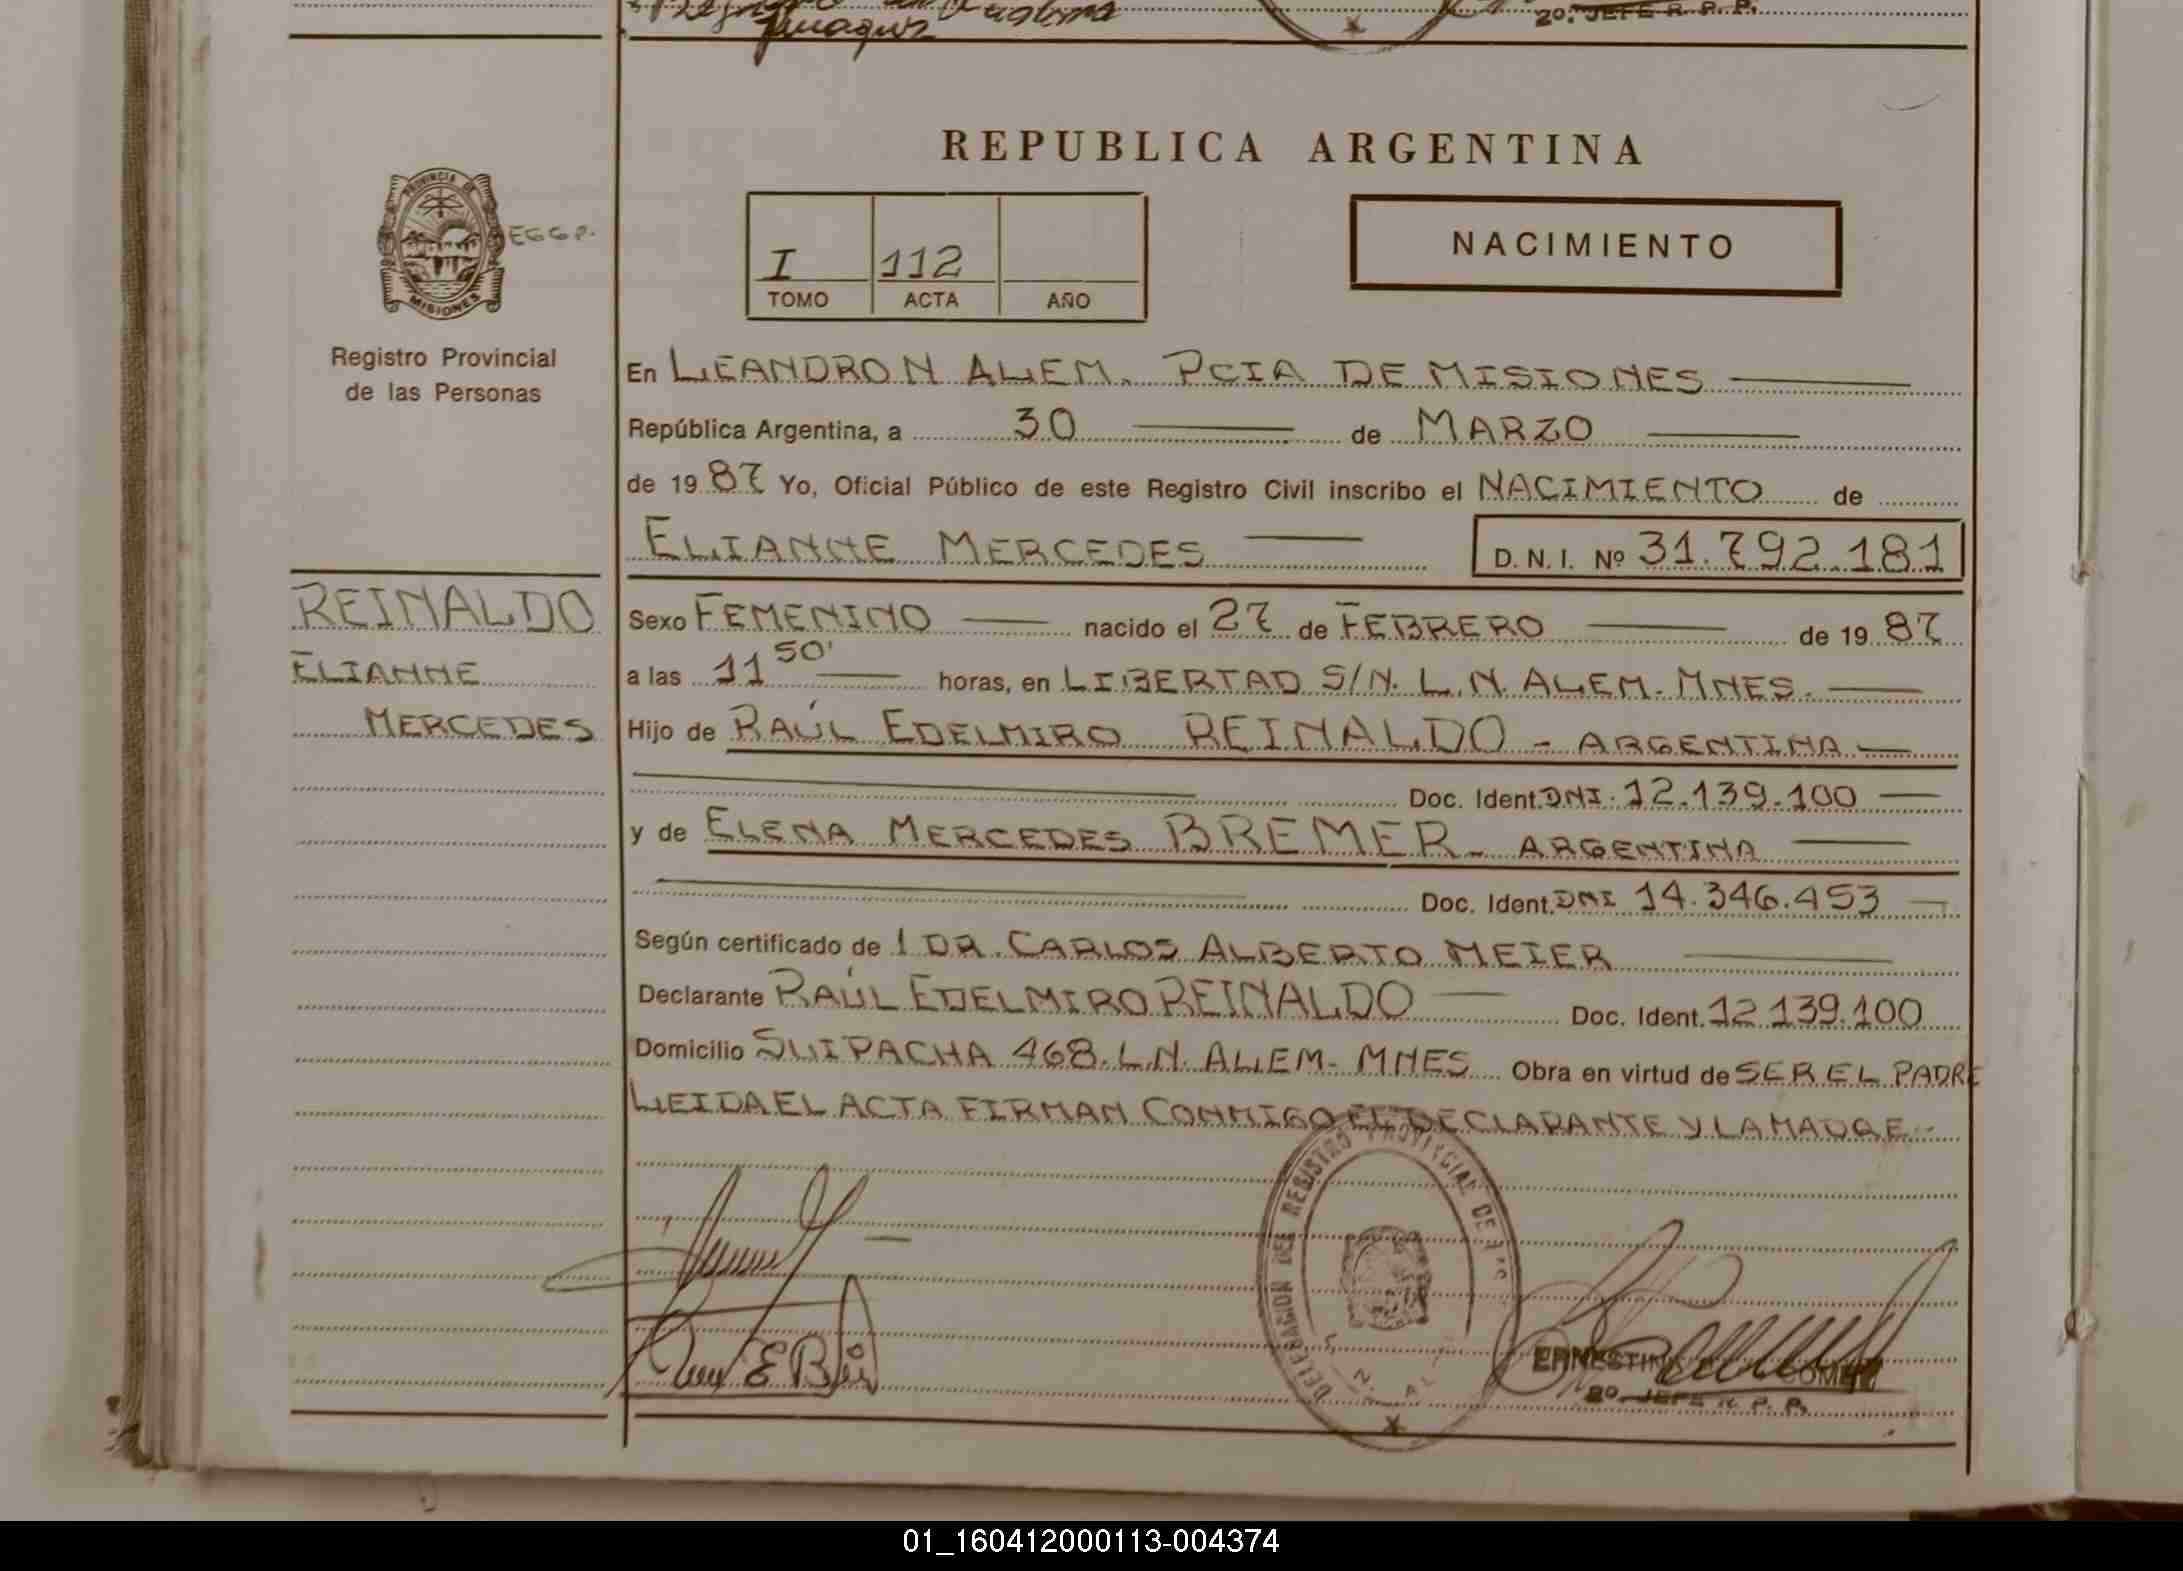 2º. JEFE R. P. P.
REPUBLICA ARGENTINA
PROVINCIA DE
MISIONES
EGGP.
I 112
TOMO ACTA AÑO
NACIMIENTO
Registro Provincial
de las Personas
En LEANDRO N ALEM. PCIA DE MISIONES
República Argentina, a 30 de MARZO
de 1987 Yo, Oficial Público de este Registro Civil inscribo el NACIMIENTO de
ELIANNE MERCEDES D. N. I. Nº 31.792.181
REINALDO
ELIANNE
MERCEDES
Sexo FEMENINO nacido el 27 de FEBRERO de 1987
a las 11 50' horas, en LIBERTAD S/N. L.N. ALEM. MNES.
Hijo de RAÚL EDELMIRO REINALDO - ARGENTINA
Doc. Ident. DNI. 12.139.100
y de ELENA MERCEDES BREMER - ARGENTINA
Doc. Ident. DNI 14.346.453
Según certificado de 1 DR. CARLOS ALBERTO MEIER
Declarante RAÚL EDELMIRO REINALDO Doc. Ident. 12.139.100
Domicilio SUIPACHA 468. L.N. ALEM - MNES Obra en virtud de SER EL PADRE
LEIDA EL ACTA FIRMAN CONMIGO EL DECLARANTE Y LA MADRE.-
DELEGACION DEL REGISTRO PROVINCIAL DE LAS
2º. JEFE R. P. P.
01_160412000113-004374